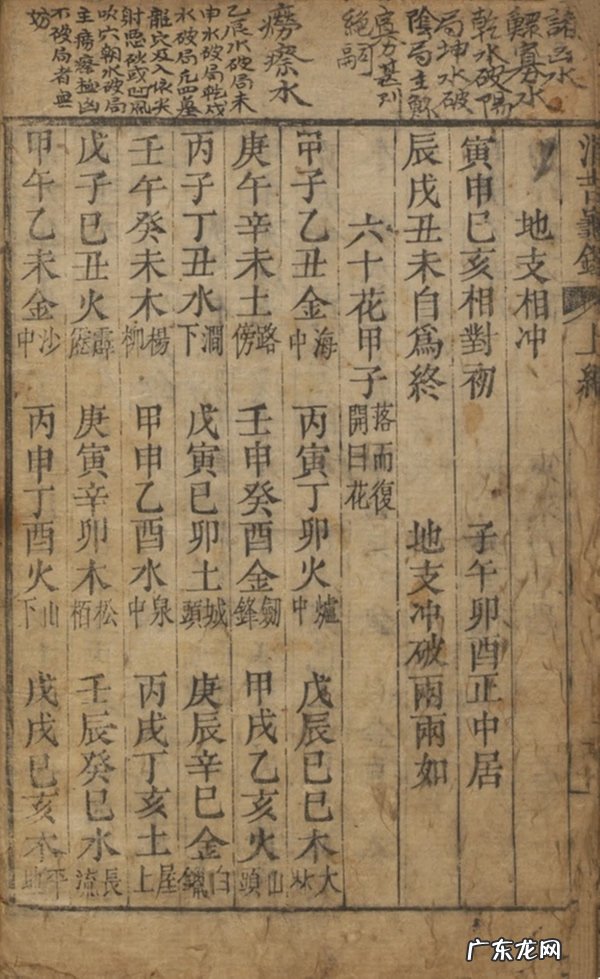 鰥寡水
乾水破陽
局坤水破
陰局主鰥
絕嗣
癆瘵水
乙辰水破局未
申水破局乾戌
水破局凡四墓
龍穴及入依尖
射惡破或凹風
吹穴朝水破局
主癆瘵極凶
不破局者無
妨
上編
地支相冲
寅申巳亥相對初 子午卯酉正中居
辰戌丑未自爲終 地支冲破兩兩如
六十花甲子 落而復開曰花
甲子乙丑金海中 丙寅丁卯火爐中 戊辰己巳木大林
庚午辛未土路傍 壬申癸酉金劒鋒 甲戌乙亥火山頭
丙子丁丑水澗下 戊寅己卯土城頭 庚辰辛巳金白鑞
壬午癸未木楊柳 甲申乙酉水泉中 丙戌丁亥土屋上
戊子己丑火霹靂 庚寅辛卯木松栢 壬辰癸巳水長流
甲午乙未金沙中 丙申丁酉火山下 戊戌己亥木平地
广东龙网